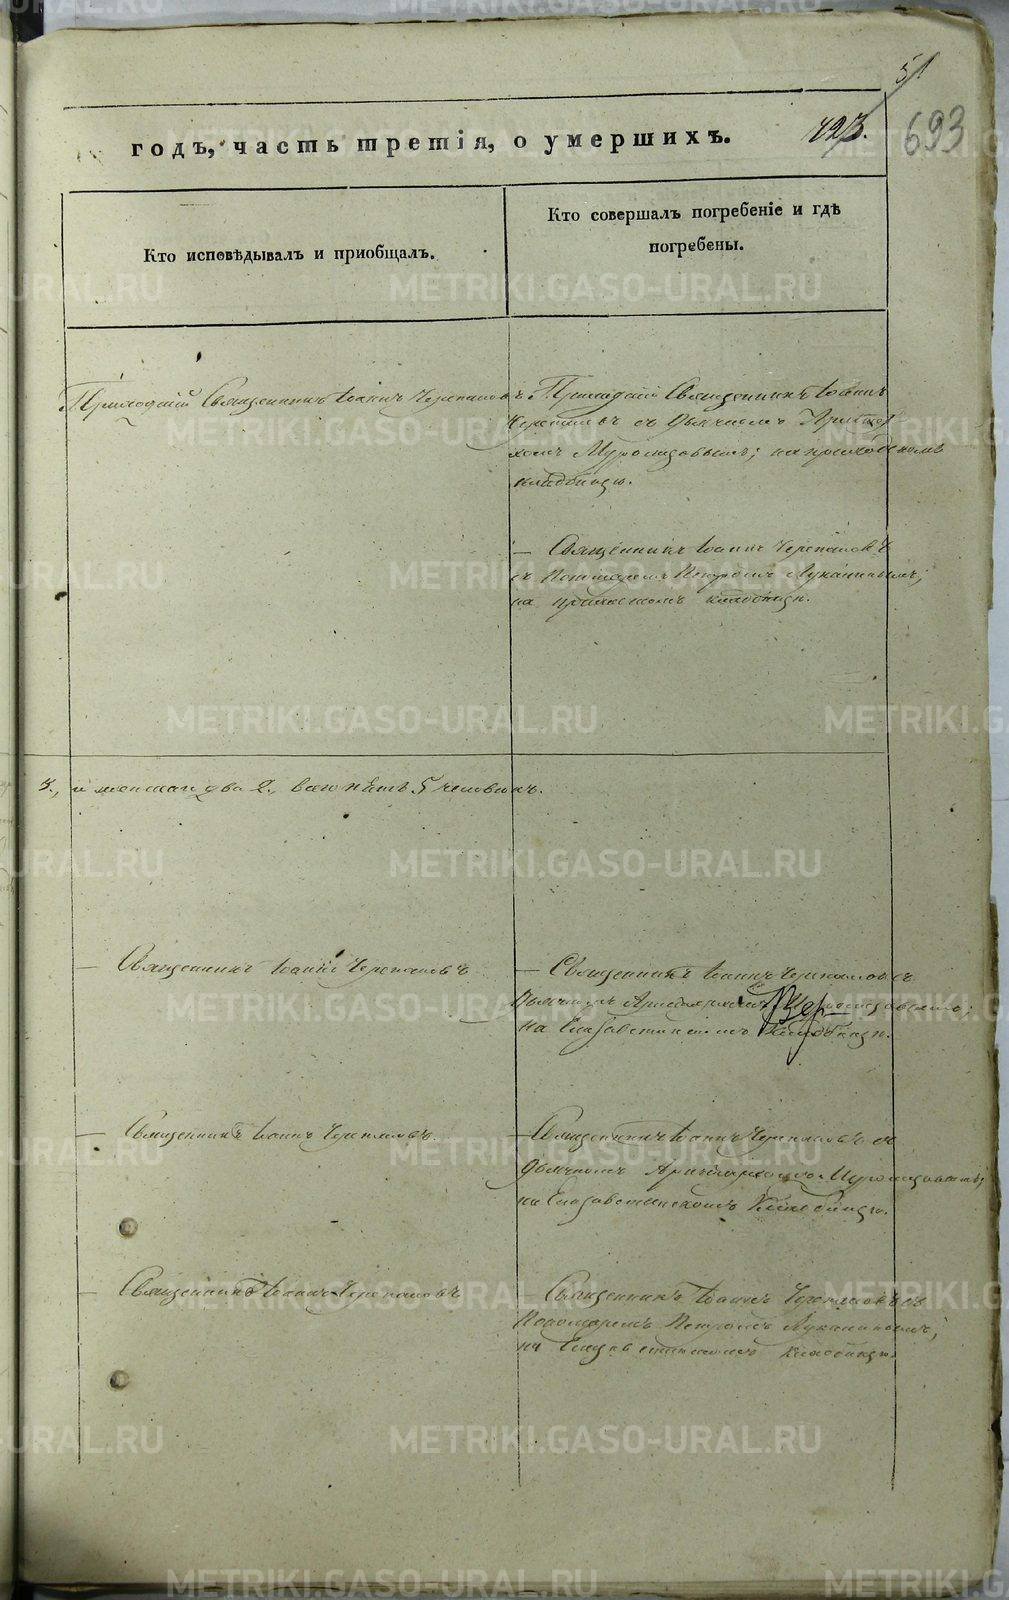 51
693
годъ, часть третія, о умершихъ.
423.
Кто исповѣдывалъ и пріобщалъ.
Кто совершалъ погребеніе и гдѣ
погребены.
Приходскій Священникъ Іоаннъ Черепановъ
Приходскій Священникъ Іоаннъ
Черепановъ съ Дьячкомъ Аристар
хомъ
на приходскомъ
кладбищѣ.
— Священникъ Іоаннъ Черепановъ
съ Пономаремъ Петромъ Луканинымъ;
на приходскомъ кладбищѣ.
3, и женска два 2, всего пять 5 человѣкъ.
— Священникъ Іоаннъ Черепановъ
— Священникъ Іоаннъ Черепановъ съ
Дьячкомъ Аристархомъ
на Елисаветинскомъ кладбищѣ.
— Священникъ Іоаннъ Черепановъ.
— Священникъ Іоаннъ Черепановъ съ
Дьячкомъ Аристархомъ
на Елисаветинскомъ кладбищѣ.
— Священникъ Іоаннъ Черепановъ
— Священникъ Іоаннъ Черепановъ съ
Пономаремъ Петромъ Луканинымъ;
на Елисаветинскомъ кладбищѣ.
METRIKI.GASO-URAL.RU